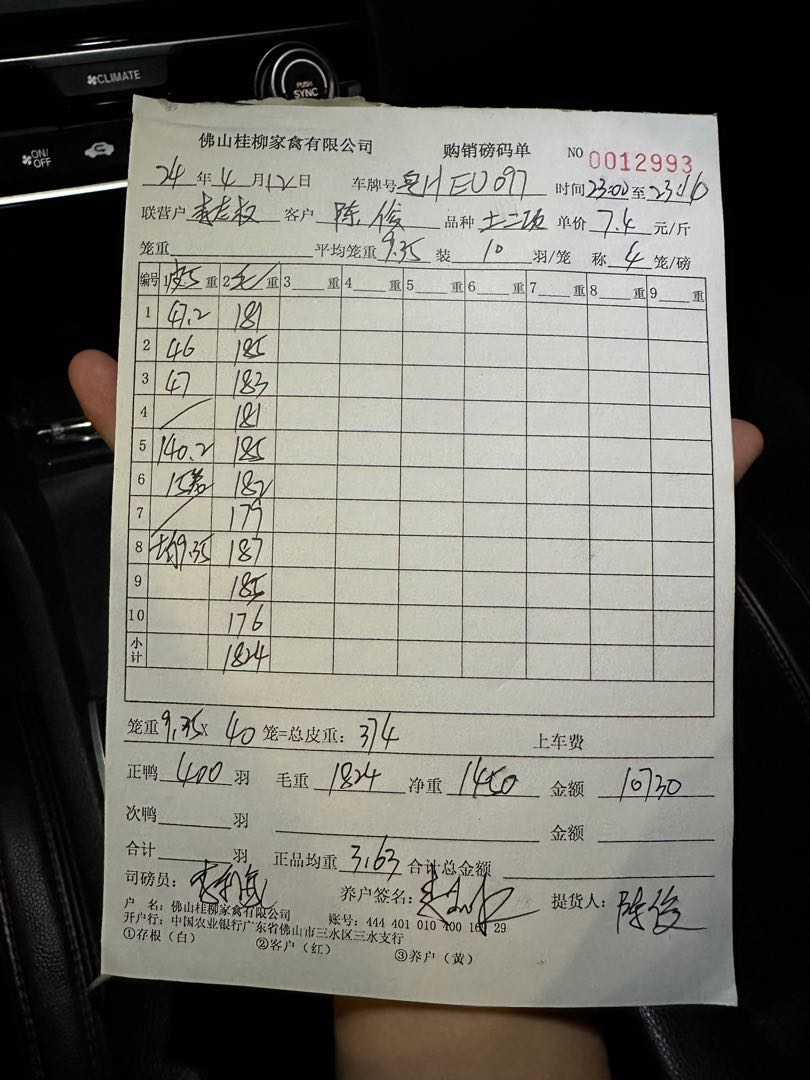 CLIMATE
PUSH
SYNC
ON/
OFF
佛山桂柳家禽有限公司 购销磅码单 NO 0012993
24年4月12日 车牌号 EU097 时间23:00至
联营户 客户 陈俊 品种 土二项 单价 7.4 元/斤
笼重 平均笼重9.35 装 10 羽/笼 称 4 笼/磅
编号 1皮5重 2毛重 3重 4重 5重 6重 7重 8重 9重
1 47.2 181
2 46 185
3 47 183
4 181
5 140.2 185
6 182
7 179
8 均9.35 187
9 185
10 176
小计 1824
笼重9.35X 40 笼=总皮重:374 上车费
正鸭 400 羽 毛重 1824 净重 1450 金额 10730
次鸭 羽 金额
合计 羽 正品均重 3.63 合计总金额
司磅员: 养户签名: 提货人: 陈俊
户 名:佛山桂柳家禽有限公司 账号:444 401 010 400 29
开户行:中国农业银行广东省佛山市三水区三水支行
①存根(白) ②客户(红) ③养户(黄)